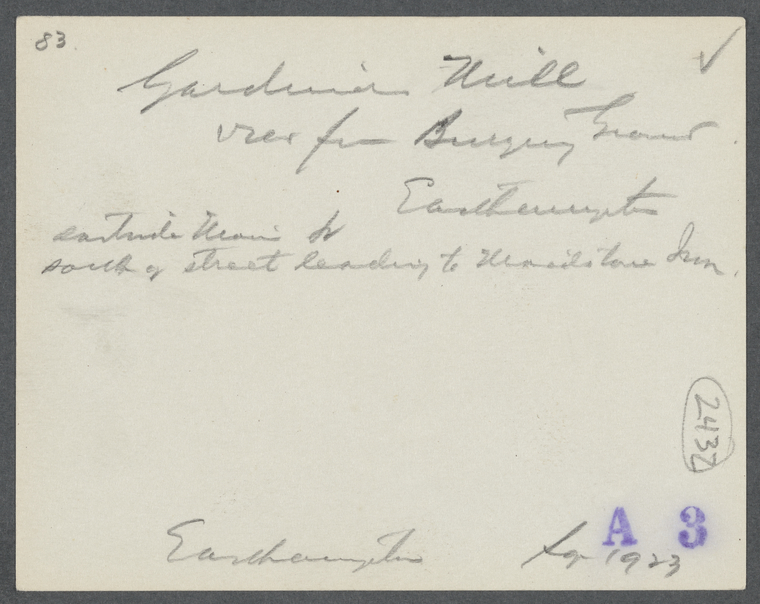 83.
Gardiner Mill
view from Burying Ground
Easthampton
eastside Main St
south of street leading to Maidstone Inn.
2432
A 3
Easthampton 1923